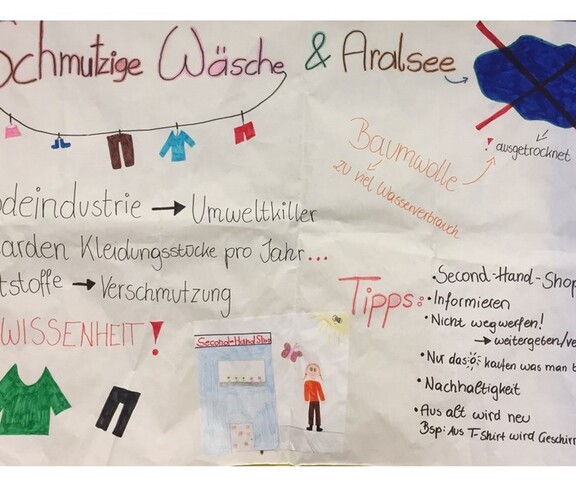 Schmutzige Wäsche & Aralsee
ausgetrocknet
Baumwolle
zu viel Wasserverbrauch
odeindustrie → Umweltkiller
arden Kleidungsstücke pro Jahr...
tstoffe → Verschmutzung
WISSENHEIT!
Second-Hand Shop
Tipps:
• Second-Hand-Shop
• Informieren
• Nicht wegwerfen!
→ weitergeben/ve
• Nur das kaufen was man b
• Nachhaltigkeit
• Aus alt wird neu
Bsp: Aus T-Shirt wird Geschirr